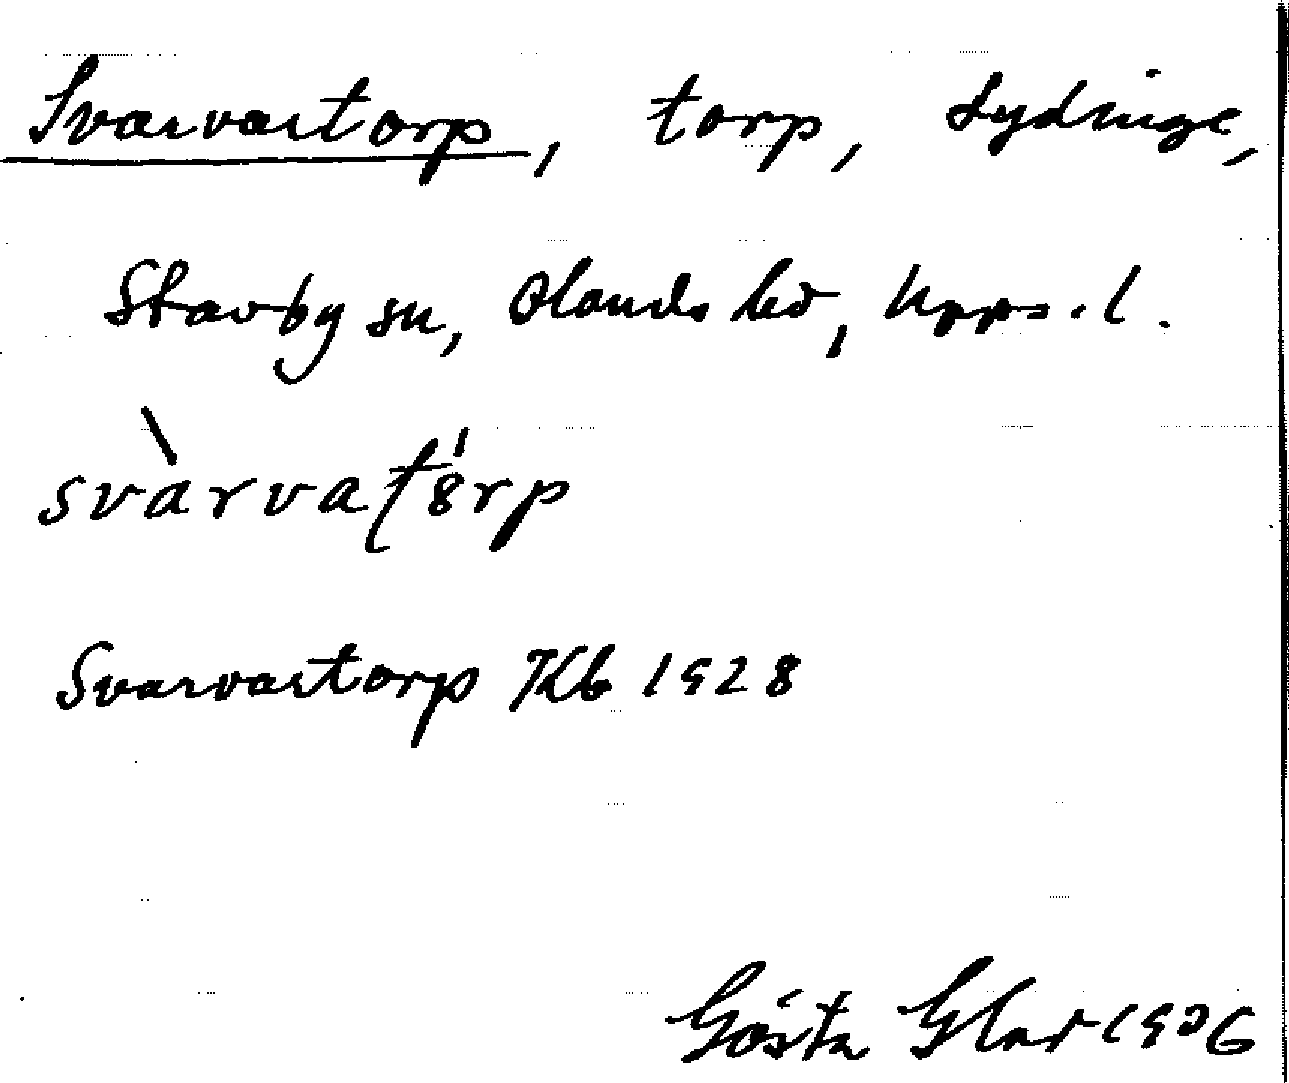 Svarvartorp, torp, Lydinge,
Stavby sn, Olands hd, Upps. l.
svàrvaʈ8́rp
Svarvartorp Kb 1928
Gösta Glad 1936